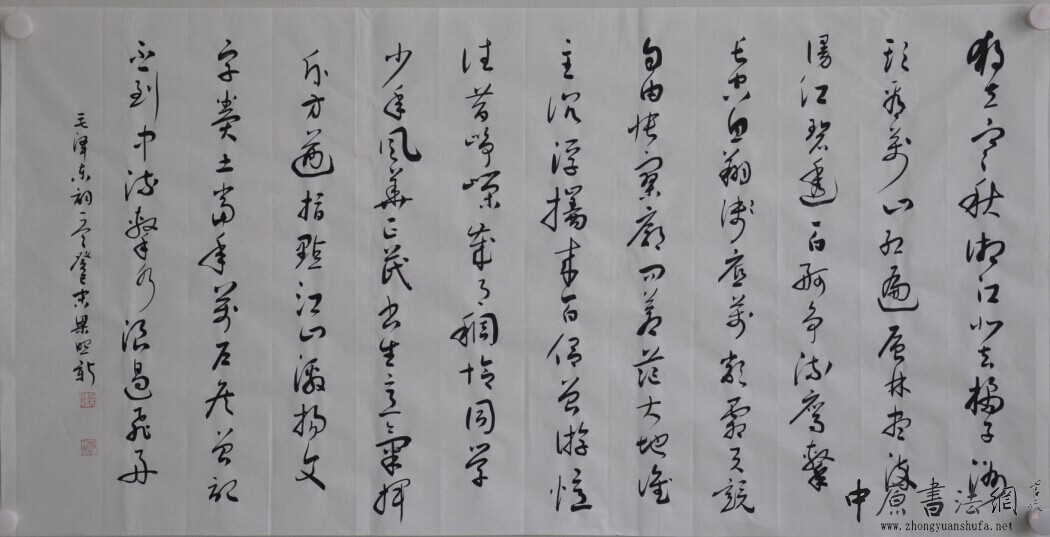 獨立寒秋湘江北去橘子洲
頭看萬山紅遍層林盡染
漫江碧透百舸爭流鷹擊
長空魚翔淺底萬類霜天競
自由悵寥廓問蒼茫大地誰
主沉浮攜來百侶曾游憶
往昔崢嶸歲月稠恰同學
少年風華正茂書生意氣揮
斥方遒指點江山激揚文
字糞土當年萬戶侯曾記
否到中流擊水浪遏飛舟
毛澤東詞一首癸未
中原書法網
www.zhongyuanshufa.net